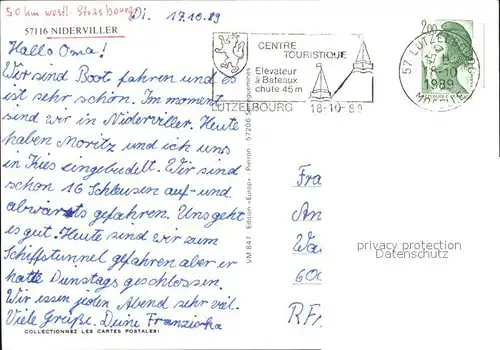 50 km westl. Strasbourg
Di. 17.10.89
57116 NIDERVILLER
Hallo Oma!
Wir sind Boot fahren und es
ist sehr schön. Im moment
sind wir in Niderviller. Heute
haben Moritz und ich uns
in Kies eingebudelt. Wir sind
schon 16 Schleusen auf- und
abwärts gefahren. Uns geht
es gut. Heute sind wir zum
Schiffstunnel gefahren aber er
hatte Dienstags geschlossen.
Wir essen jeden Abend sehr viel.
Viele Grüße. Deine Franziska
COLLECTIONNEZ LES CARTES POSTALES!
VM 847 - Edition «Europ» - Pierron - 57206 Sarreguemines
CENTRE
TOURISTIQUE
Elévateur
à Bateaux
chute 45 m
LUTZELBOURG 18-10-89
2,00
57 LUTZELBOURG
18-10
1989
MOSELLE
Fra
An
Wa
600
RFA
privacy protection
Datenschutz